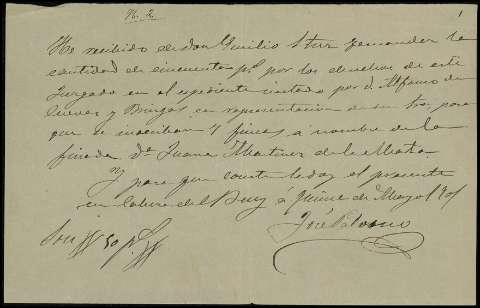 N. 2
1
He recibido de don Emilio Stur Fernandez la
cantidad de cincuenta ps por los derechos de este
Juzgado en el espediente instado por d. Alfonso de
Cuevas y Burgos en representacion de su tia, para
que se inscriban 4 fincas, a nombre de la
finada Da Juana Martinez de la Mata.
Y para que conste le doy el presente
en Cabeza del Buey á quince de Mayo
José Palomo
Son 50 ps